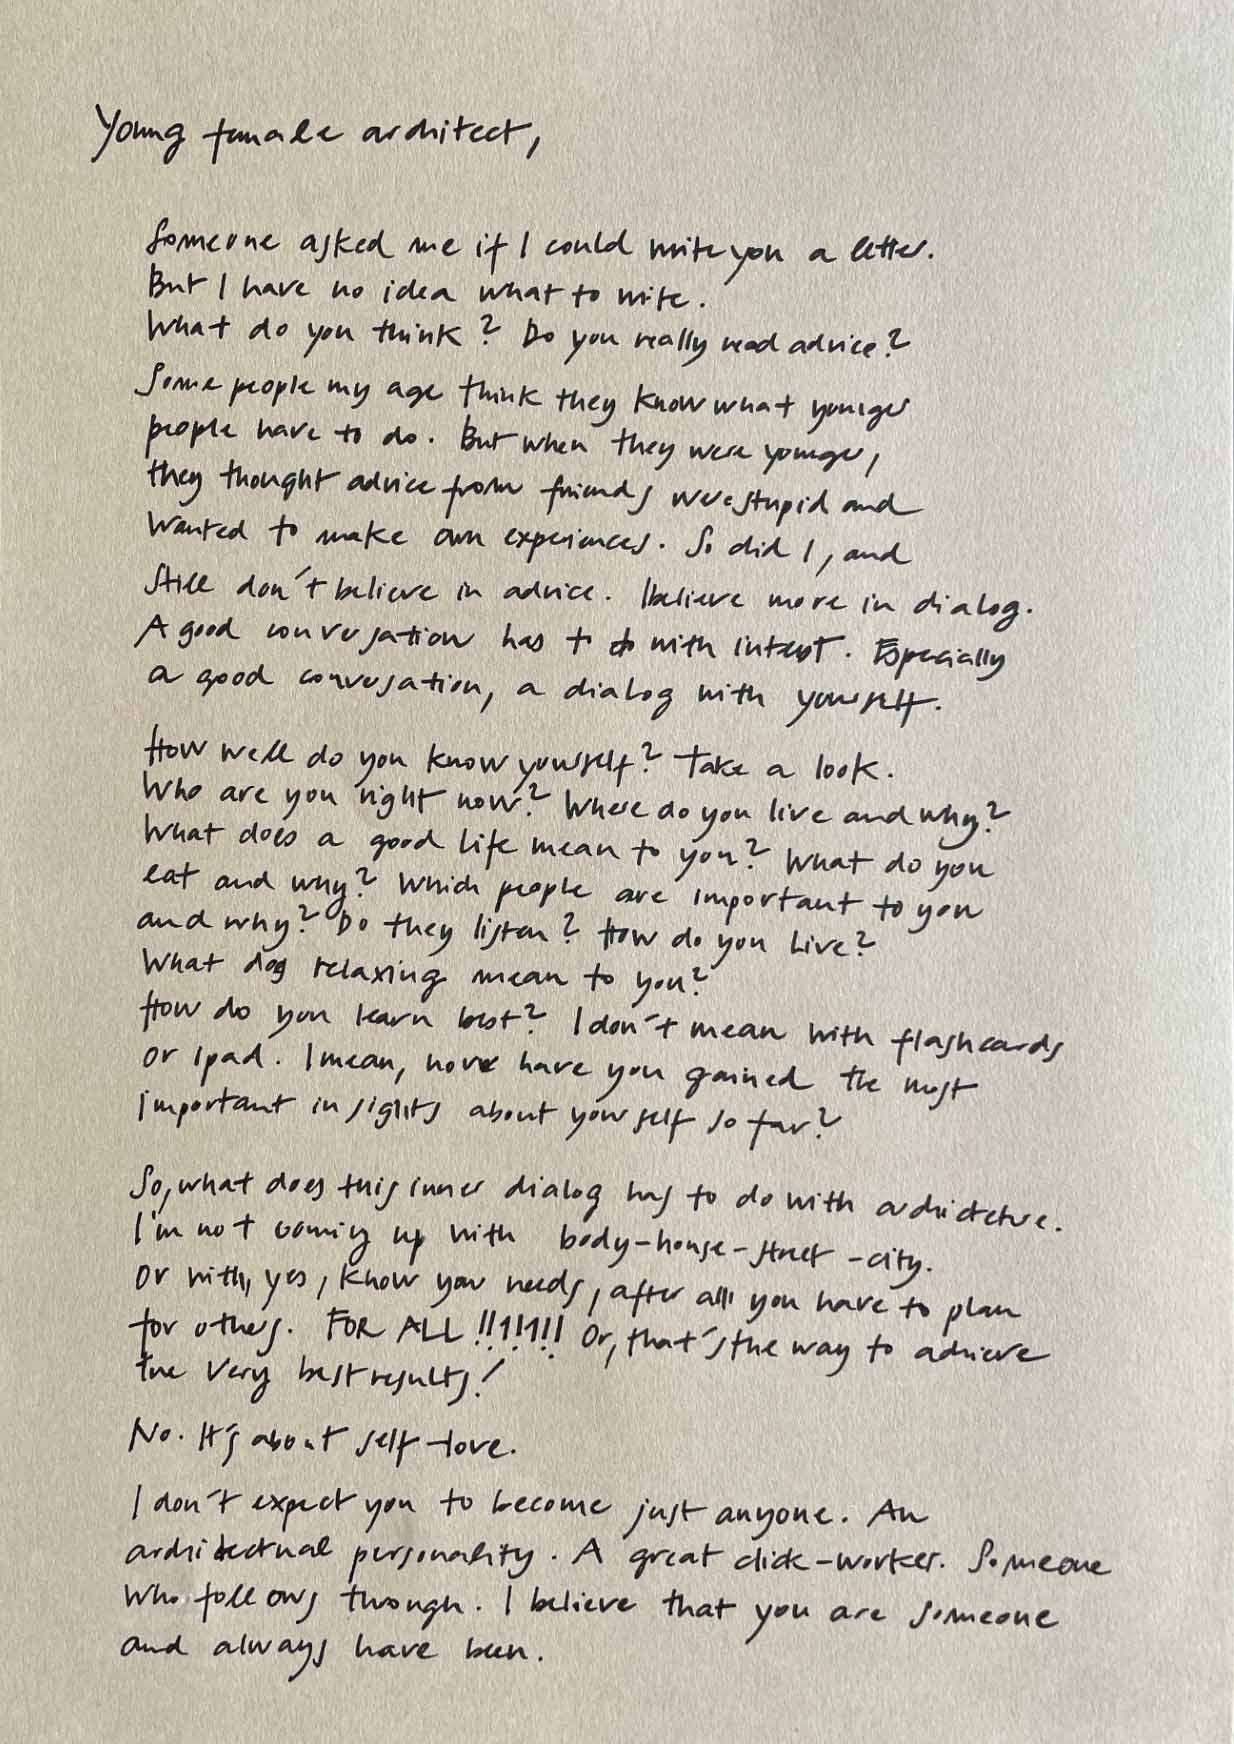 Young female architect,
Someone asked me if I could write you a letter.
But I have no idea what to write.
What do you think? Do you really read advice?
Some people my age think they know what younger
people have to do. But when they were younger,
they thought advice from friends were stupid and
wanted to make own experiences. So did I, and
still don't believe in advice. I believe more in dialog.
A good conversation has to do with interest. Especially
a good conversation, a dialog with yourself.
How well do you know yourself? Take a look.
Who are you right now? Where do you live and why?
What does a good life mean to you? What do you
eat and why? Which people are important to you
and why? Do they listen? How do you live?
What does relaxing mean to you?
How do you learn best? I don't mean with flashcards
or ipad. I mean, how have you gained the most
important insights about yourself so far?
So, what does this inner dialog has to do with architecture.
I'm not coming up with body-house-street-city.
Or with, yes, know your needs, after all you have to plan
for others. FOR ALL !!1!1!! Or, that's the way to achieve
the very best results!
No. It's about self-love.
I don't expect you to become just anyone. An
architectual personality. A great click-worker. Someone
who follows through. I believe that you are someone
and always have been.